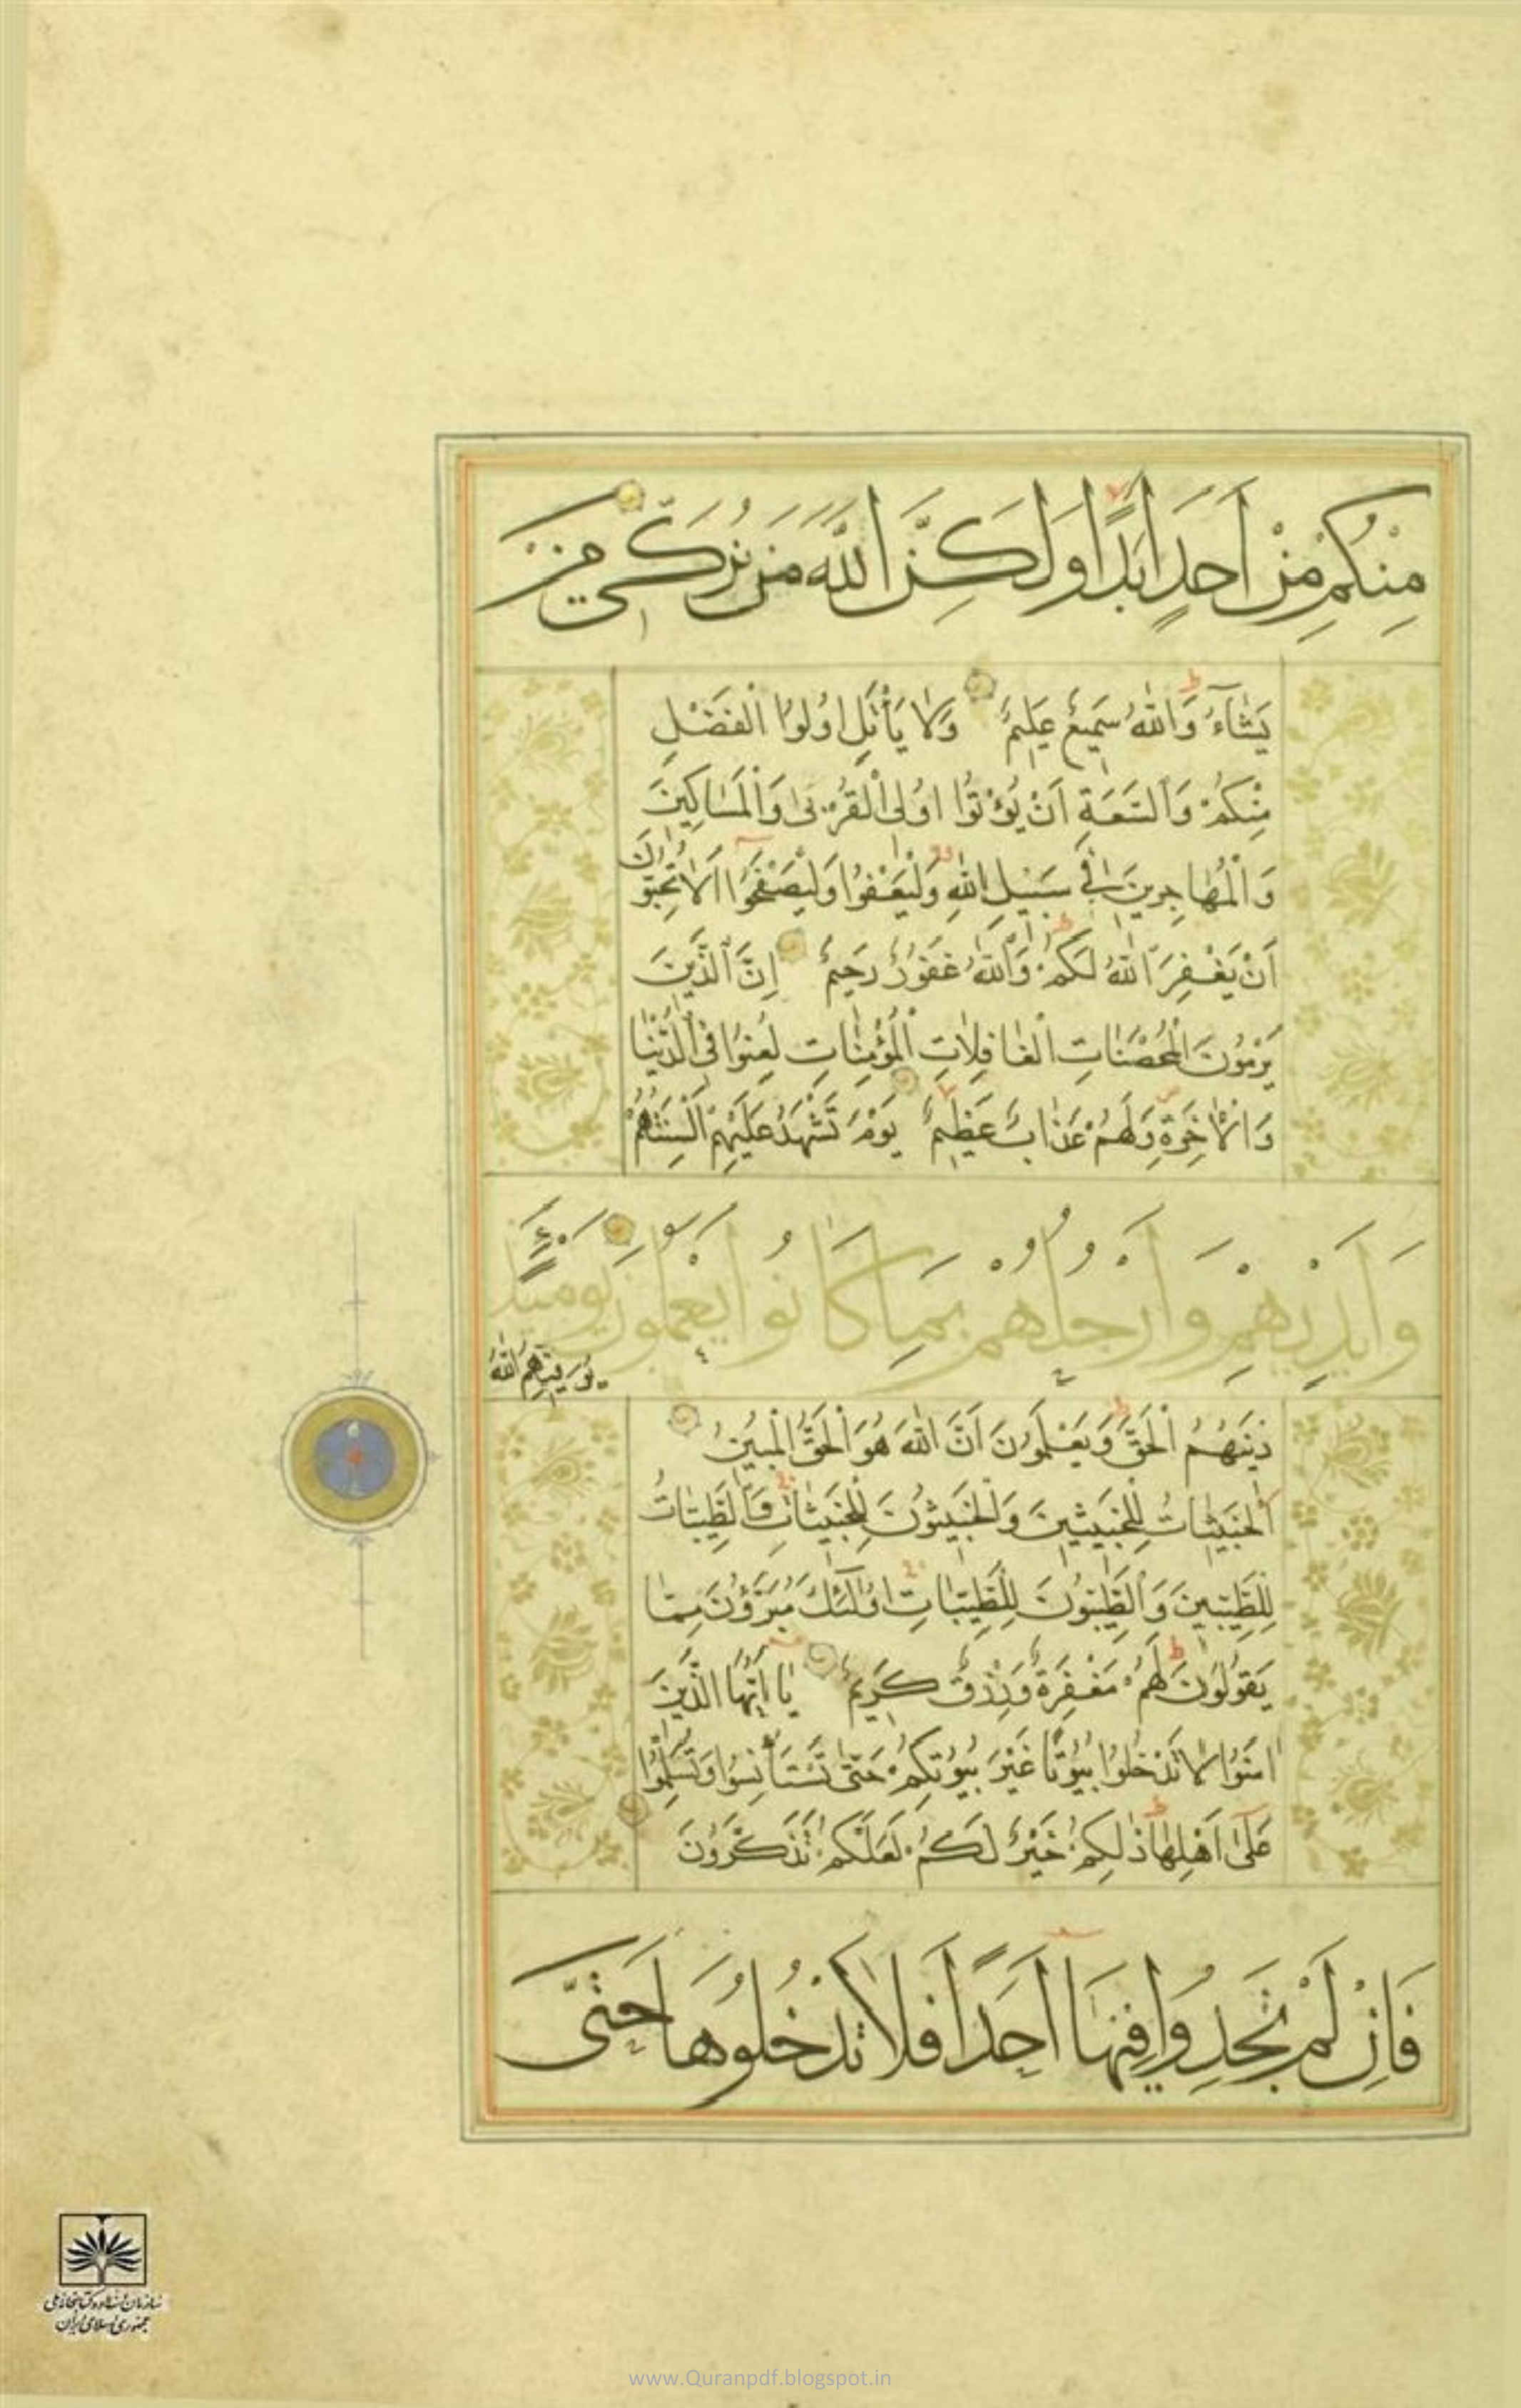 مِنْكُمْ مِنْ اَحَدٍ اَبَدًا وَلَكِنَّ اللّٰهَ يُزَكّي مَنْ
يَشَاۤءُ وَاللّٰهُ سَمِيعٌ عَلِيمٌ وَلَا يَأْتَلِ اُولُوا الْفَضْلِ
مِنْكُمْ وَالسَّعَةِ اَنْ يُؤْتُوا اُولِى الْقُرْبٰى وَالْمَسَاكِينَ
وَالْمُهَاجِرِينَ فِي سَبِيلِ اللّٰهِ وَلْيَعْفُوا وَلْيَصْفَحُوا اَلَا تُحِبُّونَ
اَنْ يَغْفِرَ اللّٰهُ لَكُمْ وَاللّٰهُ غَفُورٌ رَحِيمٌ اِنَّ الَّذِينَ
يَرْمُونَ الْمُحْصَنَاتِ الْغَافِلَاتِ الْمُؤْمِنَاتِ لُعِنُوا فِى الدُّنْيَا
وَالْاٰخِرَةِ وَلَهُمْ عَذَابٌ عَظِيمٌ يَوْمَ تَشْهَدُ عَلَيْهِمْ اَلْسِنَتُهُمْ
وَاَيْدِيهِمْ وَاَرْجُلُهُمْ بِمَا كَانُوا يَعْمَلُونَ يَوْمَئِذٍ
يُوَفِّيهِمُ اللّٰهُ
دِينَهُمُ الْحَقَّ وَيَعْلَمُونَ اَنَّ اللّٰهَ هُوَ الْحَقُّ الْمُبِينُ
اَلْخَبِيثَاتُ لِلْخَبِيثِينَ وَالْخَبِيثُونَ لِلْخَبِيثَاتِ وَالطَّيِّبَاتُ
لِلطَّيِّبِينَ وَالطَّيِّبُونَ لِلطَّيِّبَاتِ اُولٰۤئِكَ مُبَرَّؤُنَ مِمَّا
يَقُولُونَ لَهُمْ مَغْفِرَةٌ وَرِزْقٌ كَرِيمٌ يَا اَيُّهَا الَّذِينَ
اٰمَنُوا لَا تَدْخُلُوا بُيُوتًا غَيْرَ بُيُوتِكُمْ حَتّٰى تَسْتَأْنِسُوا وَتُسَلِّمُوا
عَلٰۤى اَهْلِهَا ذٰلِكُمْ خَيْرٌ لَكُمْ لَعَلَّكُمْ تَذَكَّرُونَ
فَاِنْ لَمْ تَجِدُوا فِيهَا اَحَدًا فَلَا تَدْخُلُوهَا حَتّٰى
سازمان اسناد و کتابخانه ملی
جمهوری اسلامی ایران
www.Quranpdf.blogspot.in